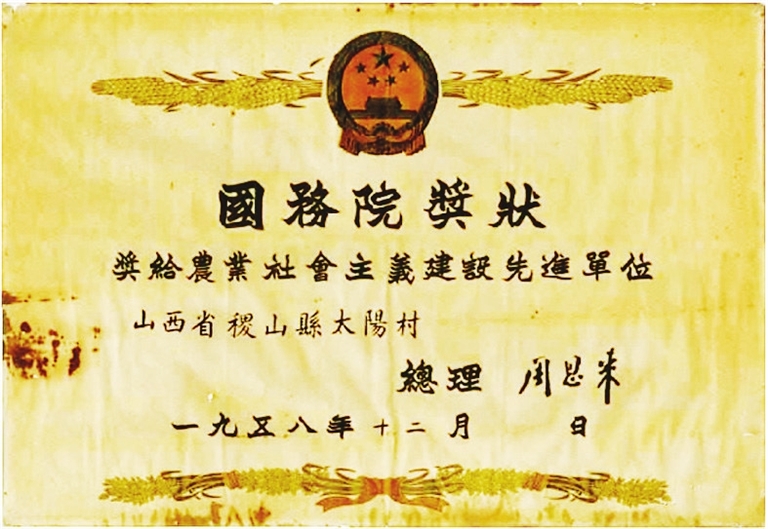 國務院獎狀
奬給農業社會主義建設先進單位
山西省稷山縣太陽村
總理 周恩来
一九五八年十二月 日